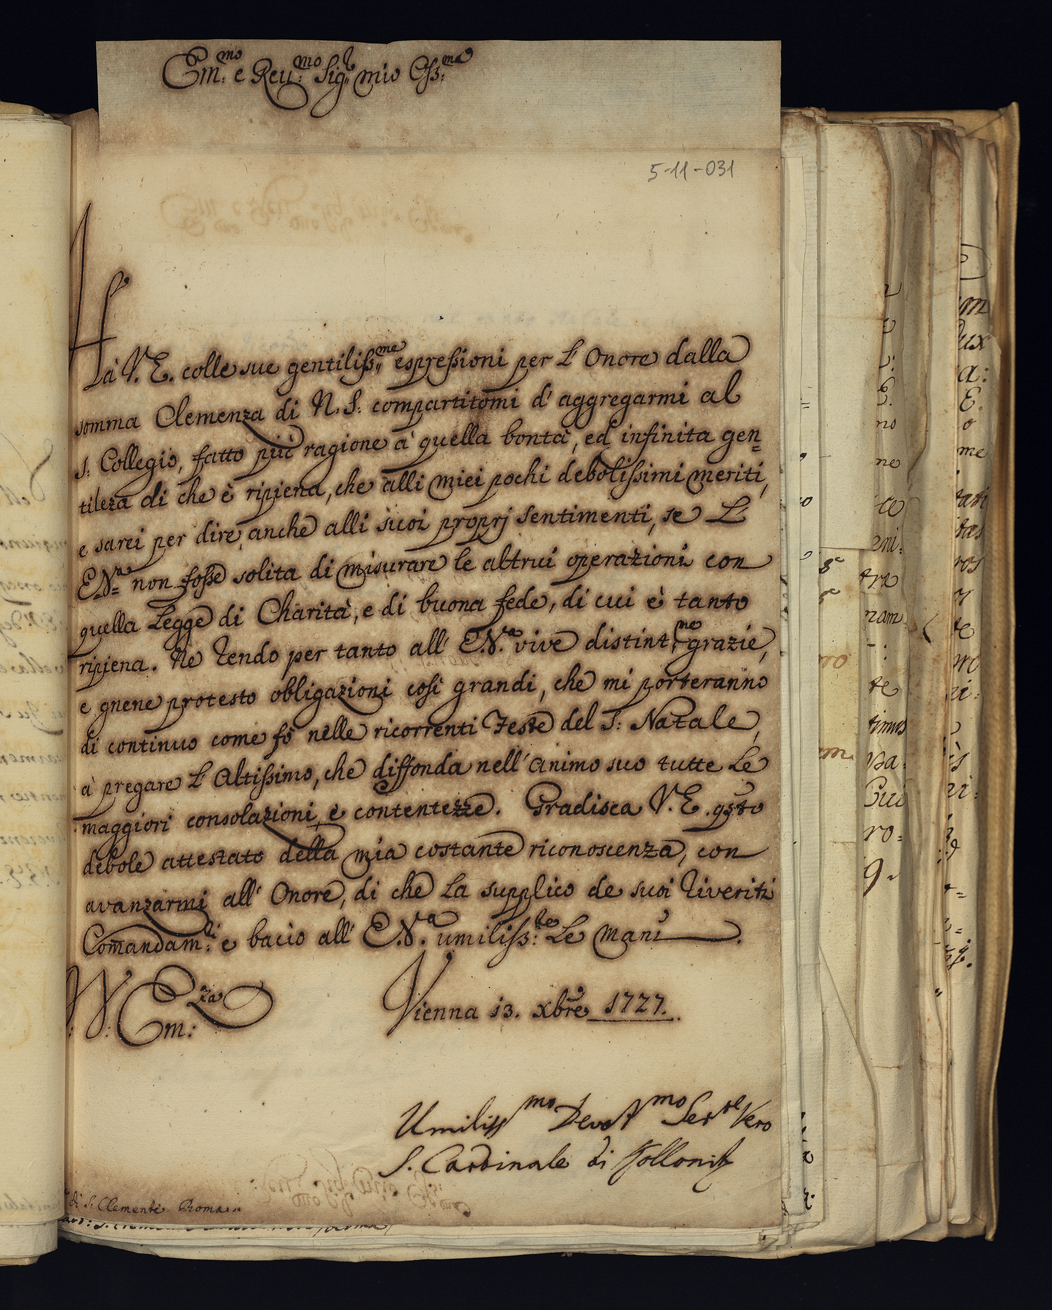 Em.mo e Reu.mo Sig.r mio Oss.mo
5-11-031
Hà V. E. colle sue gentiliss.me espressioni per L' Onore dalla
somma Clemenza di N. S. compartitomi d' aggregarmi al
S. Collegio, fatto più ragione à quella bontà, ed infinita gen=
tileza di che è ripiena, che alli miei pochi debolissimi meriti,
e sarei per dire, anche alli suoi proprj sentimenti, se L'
E.V.a non fosse solita di misurare le altrui operazioni con
quella Legge di Charità, e di buona fede, di cui è tanto
ripiena. Ne rendo per tanto all' E.V.a vive distint.me grazie,
e gnene protesto obligazioni così grandi, che mi porteranno
di continuo come fò nelle ricorrenti Feste del S: Natale,
à pregare L' Altissimo, che diffonda nell' animo suo tutte Le
maggiori consolazioni, e contentezze. Gradisca V. E. q.sto
debole attestato della mia costante riconoscenza, con
avanzarmi all' Onore, di che La supplico de suoi riveriti
Comandam.ti e bacio all' E.V.a umiliss.te Le Mani.
V. Em.za:
Vienna 13. xbre 1727.
Umiliss.mo Devot.mo Ser.re Vero
S. Cardinale di Kollonitz
di S. Clemente Roma